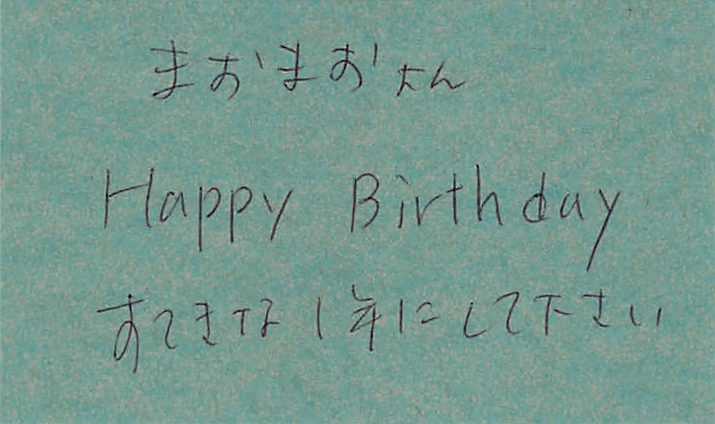 まおまおさん
Happy Birthday
すてきな1年にして下さい